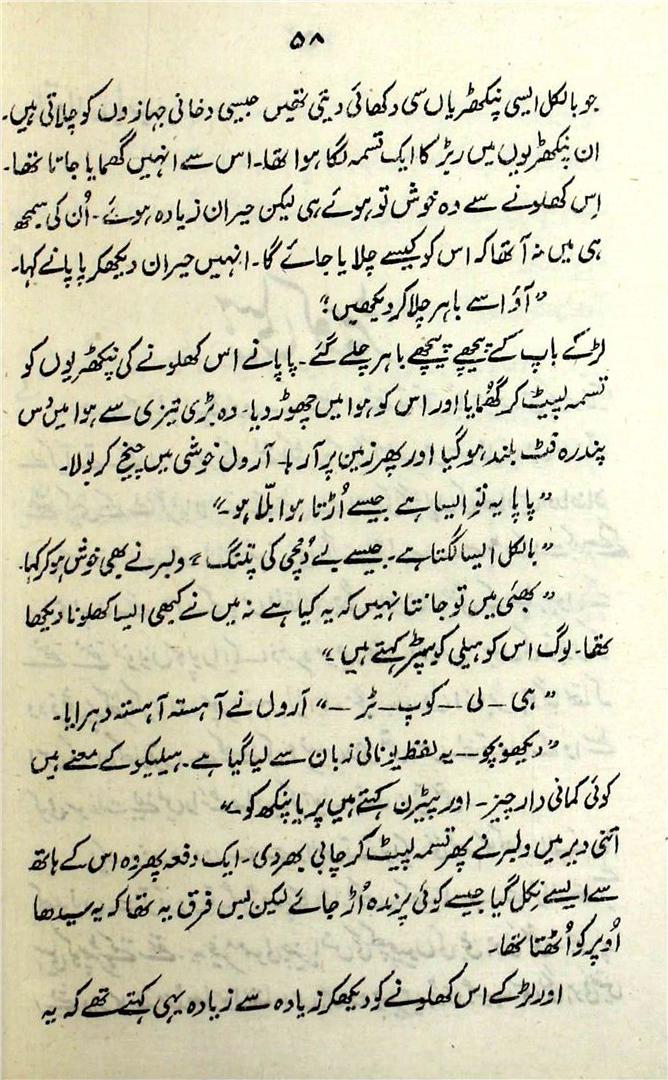 ۵۸
جو بالکل ایسی پنکھڑیاں سی دکھائی دیتی تھیں جیسی دخانی جہازوں کو چلاتی ہیں۔
ان پنکھڑیوں میں ربڑ کا ایک تسمہ لگا ہوا تھا۔ اس سے انہیں گھمایا جاتا تھا۔
اِس کھلونے سے وہ خوش تو ہوئے ہی لیکن حیران زیادہ ہوئے۔ اُن کی سمجھ
ہی میں نہ آتا تھا کہ اس کو کیسے چلایا جائے گا۔ انہیں حیران دیکھکر پاپا نے کہا۔
”آؤ اسے باہر چلا کر دیکھیں“؛
لڑکے باپ کے پیچھے پیچھے باہر چلے گئے۔ پاپا نے اس کھلونے کی پنکھڑیوں کو
تسمہ لپیٹ کر گھمایا اور اس کو ہوا میں چھوڑ دیا۔ وہ بڑی تیزی سے ہوا میں دس
پندرہ فٹ بلند ہو گیا اور پھر زمین پر آ رہا۔ آرول خوشی میں چیخ کر بولا۔
”پاپا یہ تو ایسا ہے جیسے اُڑتا ہوا بلّا ہو۔“
”بالکل ایسا لگتا ہے۔ جیسے بے دُمچی کی پتنگ“ ولبر نے بھی خوش ہو کر کہا۔
”بھئی میں تو جانتا نہیں کہ یہ کیا ہے نہ میں نے کبھی ایسا کھلونا دیکھا
تھا۔ لوگ اس کو ہیلی کوپٹر کہتے ہیں“
”ہی ۔ لی ۔ کوپ ۔ ٹر ۔“ آرول نے آہستہ آہستہ دہرایا۔
”دیکھو بچو ۔۔ یہ لفظ یونانی زبان سے لیا گیا ہے۔ ہیلیکو کے معنے ہیں
کوئی کمانی دار چیز۔ اور پیٹرن کہتے ہیں پر یا پنکھ کو۔“
اتنی دیر میں ولبر نے پھر تسمہ لپیٹ کر چابی بھر دی۔ ایک دفعہ پھر وہ اس کے ہاتھ
سے ایسے نکل گیا جیسے کوئی پرندہ اُڑ جائے لیکن بس فرق یہ تھا کہ یہ سیدھا
اُوپر کو اُٹھتا تھا۔
اور لڑکے اس کھلونے کو دیکھکر زیادہ سے زیادہ یہی کہتے تھے کہ یہ